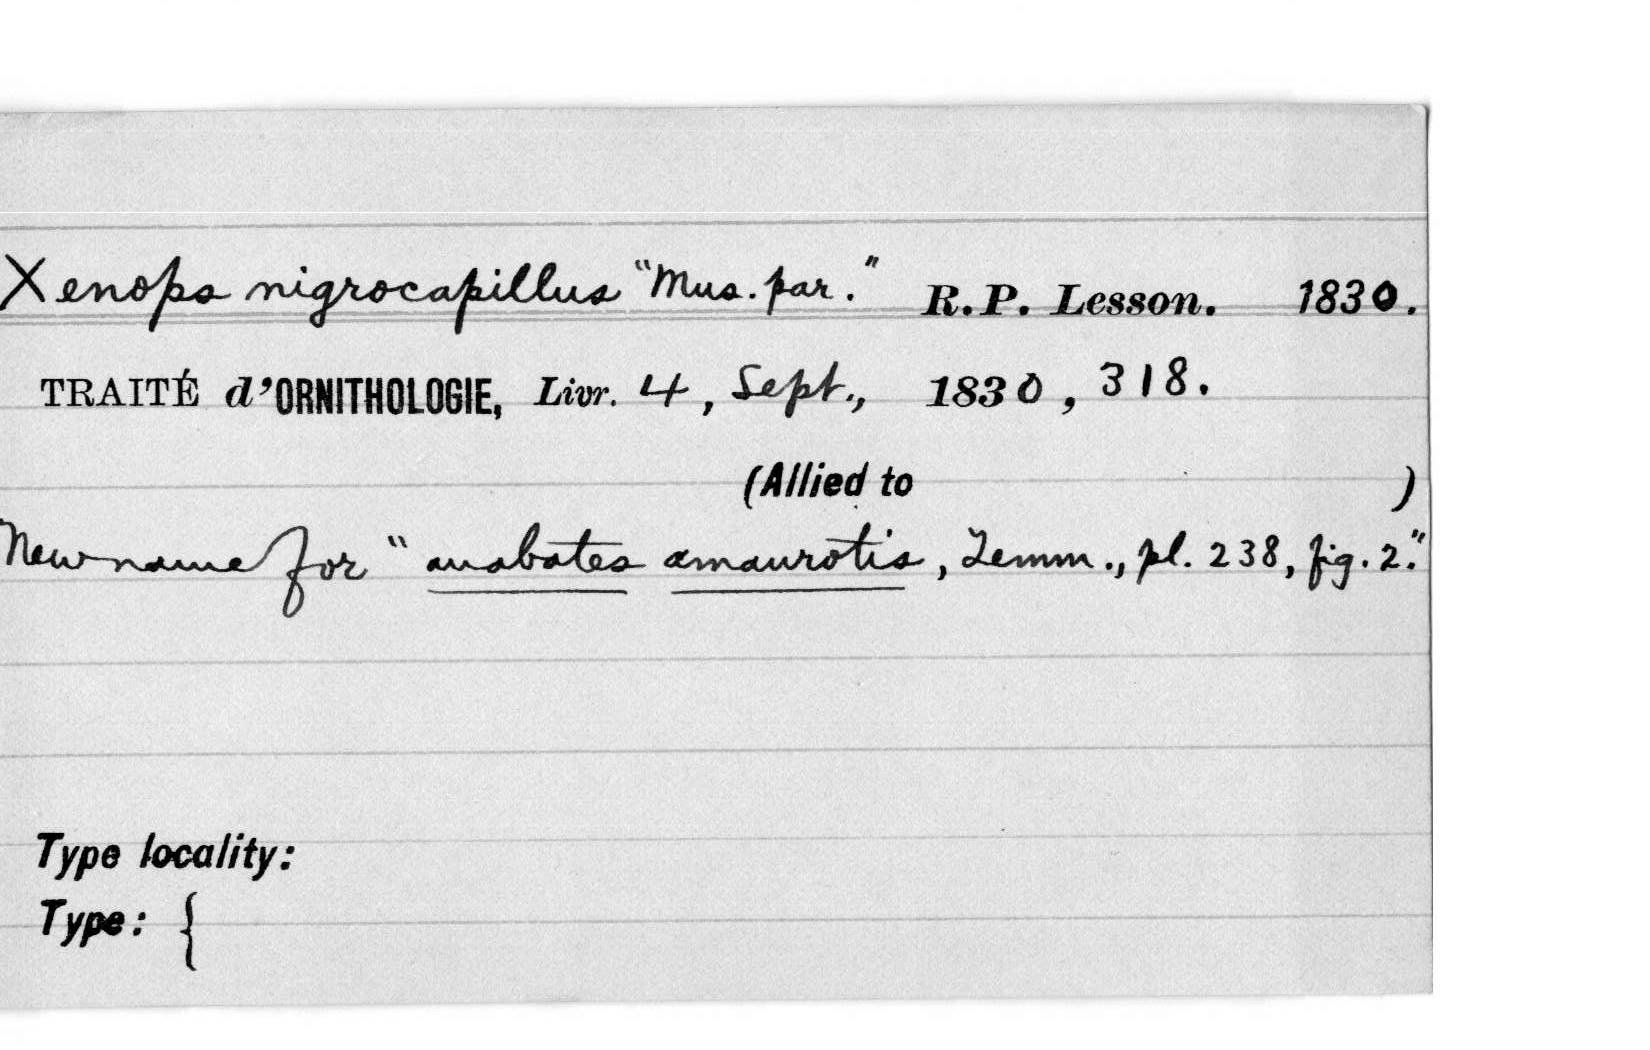 Xenops nigrocapillus "Mus. par." R. P. Lesson. 1830.
TRAITÉ d'ORNITHOLOGIE, Livr. 4, Sept., 1830, 318.
(Allied to )
New name for "anabates amaurotis, Temm., pl. 238, fig. 2."
Type locality:
Type: {